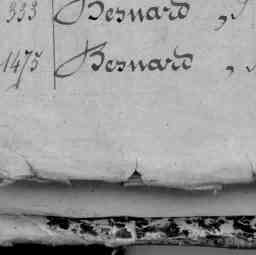 333 Besnard,
1475 Besnard,